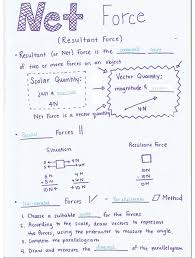 Net Force
(Resultant Force)
• Resultant (or Net) Force is the combined
of two or more forces on an object
Scalar Quantity:
just a
4N
Vector Quantity:
magnitude &
4N
Net Force is a vector quantity
Parallel Forces
Situation
Resultant Force
Forces
Parallelogram Method
1. Choose a suitable scale for the forces
2. According to the scale, draw vectors to represent
the forces, using the protractor to measure the angle.
3. Complete the parallelogram
4. Draw and measure the diagonal of this parallelogram